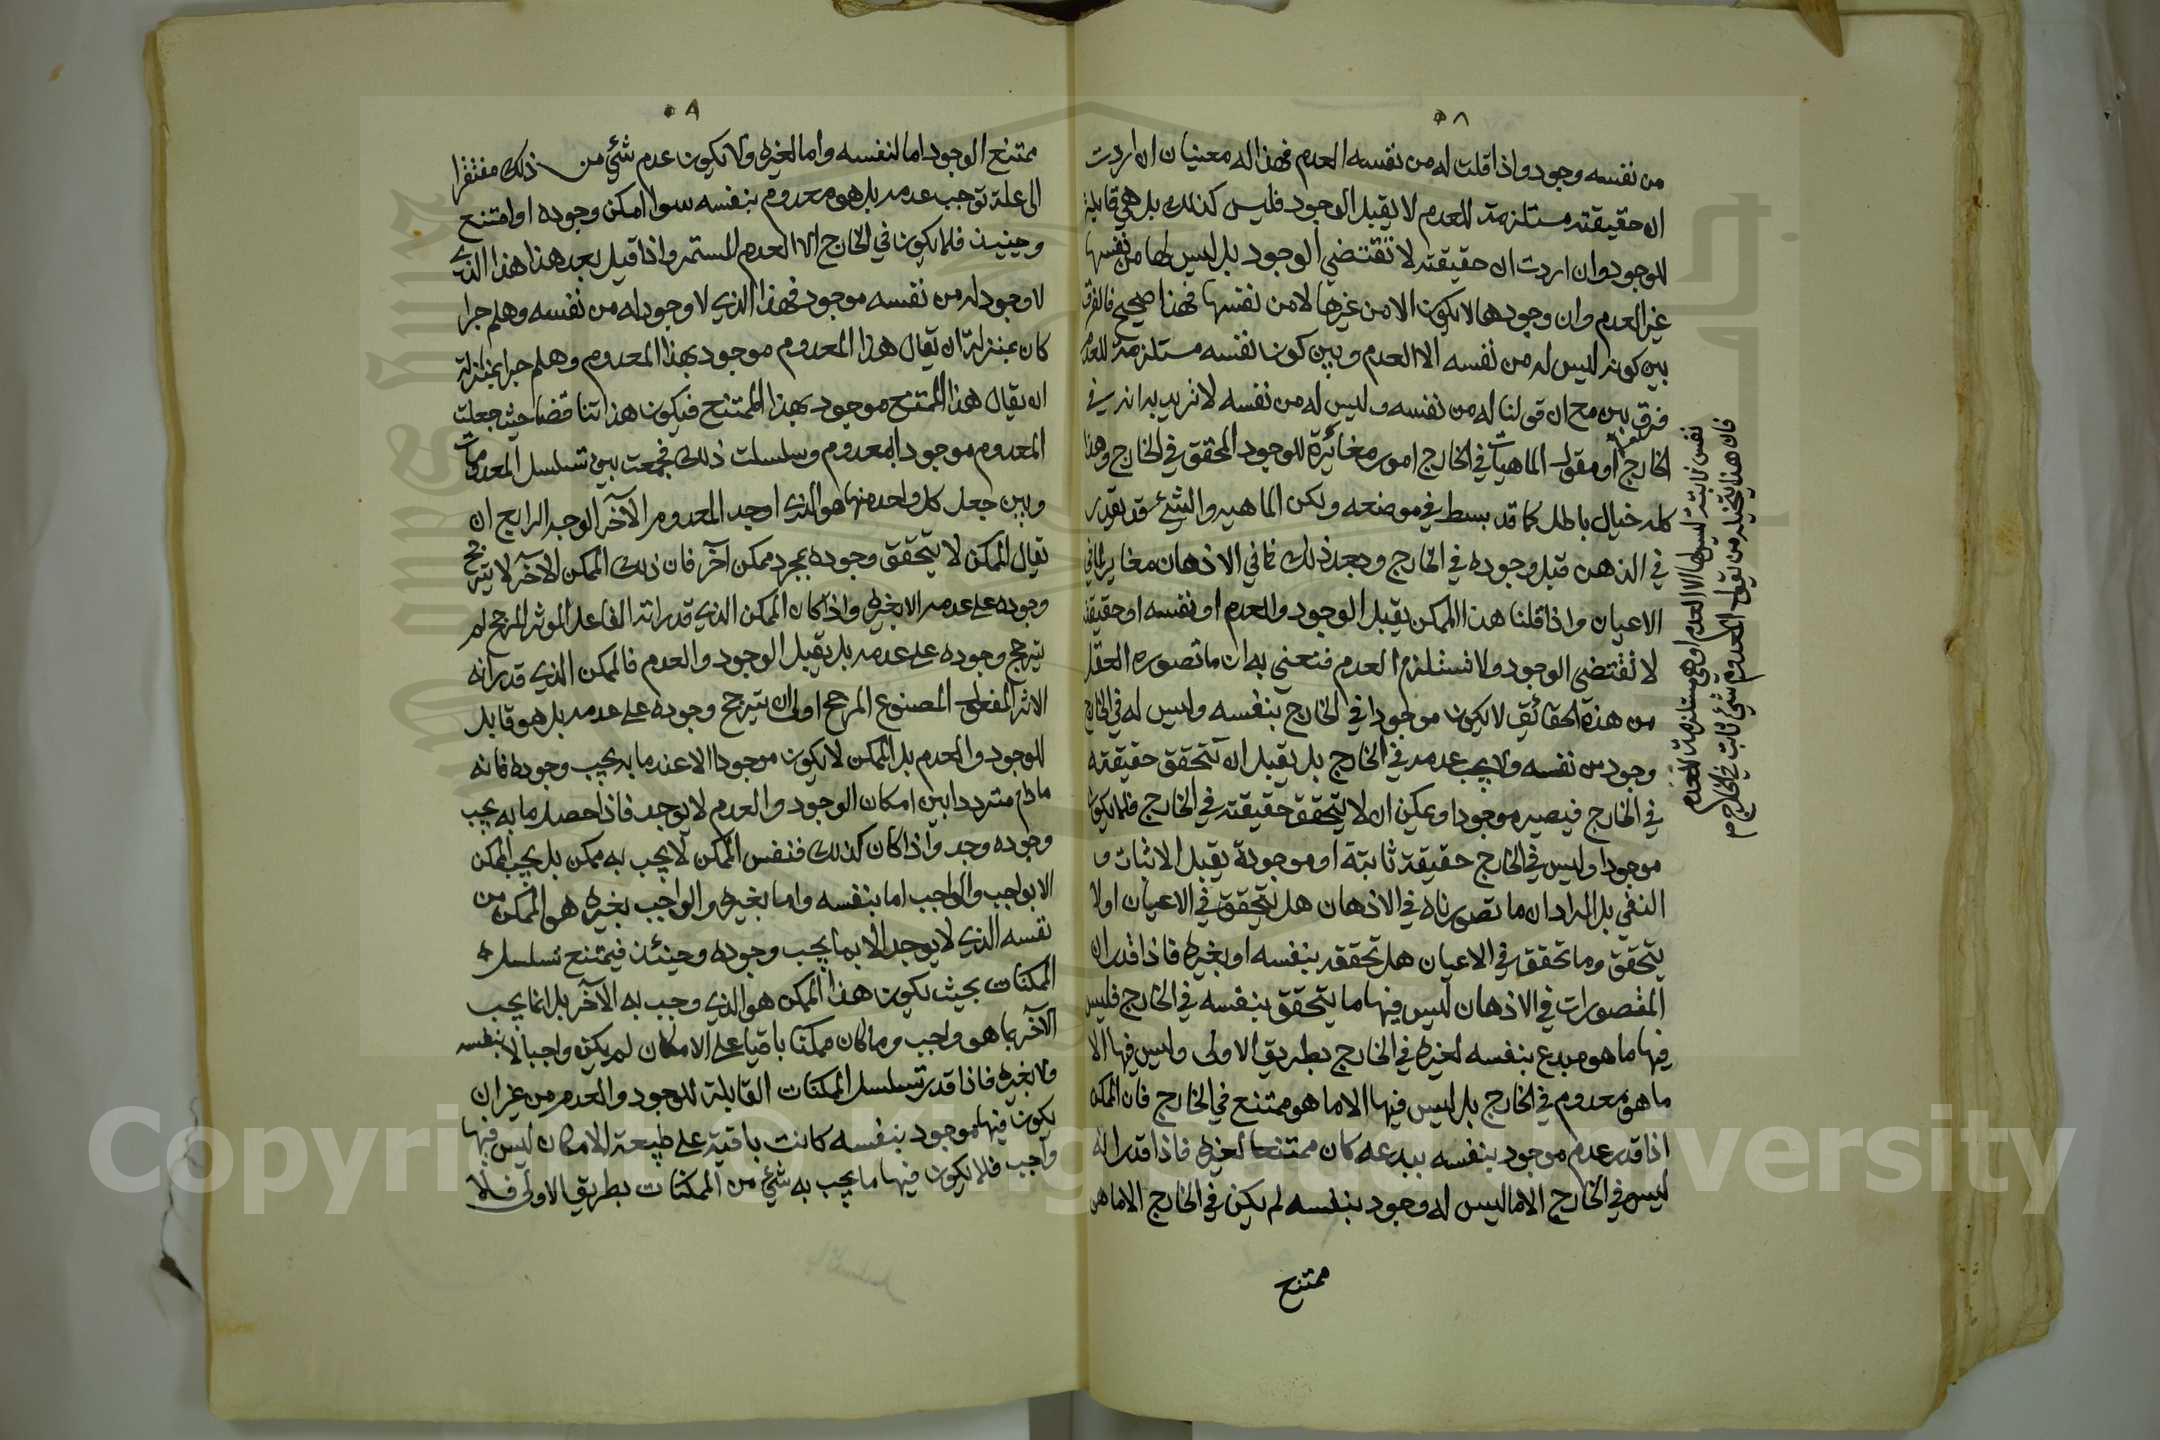 ٥٨
من نفسه وجود واذا قلت له من نفسه العدم فهذا له معنيان ان اردت
ان حقيقته مستلزمة للعدم لا يقبل الوجود فليس كذلك بل هي قابلة
للوجود وان اردت ان حقيقته لا تقتضي الوجود بل ليس لها من نفسها
غير العدم وان وجودها لا يكون الا من غيرها لا من نفسها فهذا صحيح فالفرق
بين كونه ليس له من نفسه الا العدم وبين كون نفسه مستلزمة للعدم
فرق بين مع ان قولنا له من نفسه وليس له من نفسه لا نريد به انه في
الخارج او مقول الماهيات في الخارج امور مغائرة للوجود المحقق في الخارج وهذا
كله خيال باطل كما قد بسط في موضعه ولكن الماهيه والشيء قد يقدر
في الذهن قبل وجوده في الخارج وبعد ذلك فما في الاذهان مغاير لما في
الاعيان واذا قلنا هذا الممكن يقبل الوجود والعدم او نفسه او حقيقته
لا تقتضي الوجود ولا تستلزم العدم فنعني به ان ما تصوره العقل
من هذه الحقائق لا يكون موجودا في الخارج بنفسه وليس له في الخارج
وجود من نفسه ولا يجب عدمه في الخارج بل يقبل ان تتحقق حقيقته
في الخارج فيصير موجودا ويمكن ان لا يتحقق حقيقته في الخارج فلا يكون
موجودا وليس في الخارج حقيقة ثابتة او موجودة يقبل الاثبات و
النفي بل المراد ان ما تصورناه في الاذهان هل يتحقق في الاعيان او لا
يتحقق وما تحقق في الاعيان هل تحققه بنفسه او بغيره فاذا قدر ان
المتصورات في الاذهان ليس فيها ما يتحقق بنفسه في الخارج فليس
فيها ما هو مبدع بنفسه لغيره في الخارج بطريق الاولى وليس فيها الا
ما هو معدوم في الخارج بل ليس فيها الا ما هو ممتنع في الخارج فان الممكن
اذا قدر عدم موجود بنفسه يبدعه كان ممتنعا لغيره فاذا قدر انه
ليس في الخارج الا ما ليس له وجود بنفسه لم يكن في الخارج الا ما هو
ممتنع
نفس ثابتة ليس لها الا العدم او هي مستلزمة للعدم
فان هذا يتخيله من يقول المعدوم شيء ثابت في الخارج م
٥٩
ممتنع الوجود اما لنفسه واما لغيره ولا يكون عدم شئ من ذلك مفتقرا
الى علة توجب عدمه بل هو معدوم بنفسه سوا امكن وجوده او امتنع
وحينئذ فلا يكون في الخارج الا العدم المستمر واذا قيل بعد هذا هذا الذي
لا وجود له من نفسه موجود فهذا الذي لا وجود له من نفسه وهلم جرا
كان بمنزلة ان يقال هذا المعدوم موجود بهذا المعدوم وهلم جرا بمنزلة
ان يقال هذا الممتنع موجود بهذا الممتنع فيكون هذا تناقضا حيث جعلت
المعدوم موجودا بمعدوم وسلسلت ذلك فجمعت بين تسلسل المعدومات
وبين جعل كل واحد منها هو الذي اوجد المعدوم الآخر الوجه الرابع ان
يقال الممكن لا يتحقق وجوده بمجرد ممكن آخر فان ذلك الممكن الآخر لا يترجح
وجوده على عدمه الا بغيره واذا كان الممكن الذي قدر انه الفاعل الموثر المرجح لم
يترجح وجوده على عدمه بل يقبل الوجود والعدم فالممكن الذي قدر انه
الاثر المفعول المصنوع المرجح اولى ان يترجح وجوده على عدمه بل هو قابل
للوجود والعدم بل الممكن لا يكون موجودا الا عند ما به يجب وجوده فانه
مادام مترددا بين امكان الوجود والعدم لا يوجد فاذا حصل ما به يجب
وجوده وجد واذا كان كذلك فنفس الممكن لا يجب به ممكن بل يجب الممكن
الا بواجب والواجب اما بنفسه واما بغيره والواجب بغيره هو الممكن من
نفسه الذي لا يوجد الا بما يجب وجوده وحينئذ فيمتنع تسلسل
الممكنات بحيث يكون هذا الممكن هو الذي وجب به الآخر بل انما يجب
الآخر بما هو واجب وما كان ممكنا باقيا على الامكان لم يكن واجبا لا بنفسه
ولا بغيره فاذا قدر تسلسل الممكنات القابلة للوجود والعدم من غير ان
يكون فيها موجود بنفسه كانت باقية على طبيعة الامكان ليس فيها
واجب فلا يكون فيها ما يجب به شئ من الممكنات بطريق الاولى فلا
Copyright © King Saud University